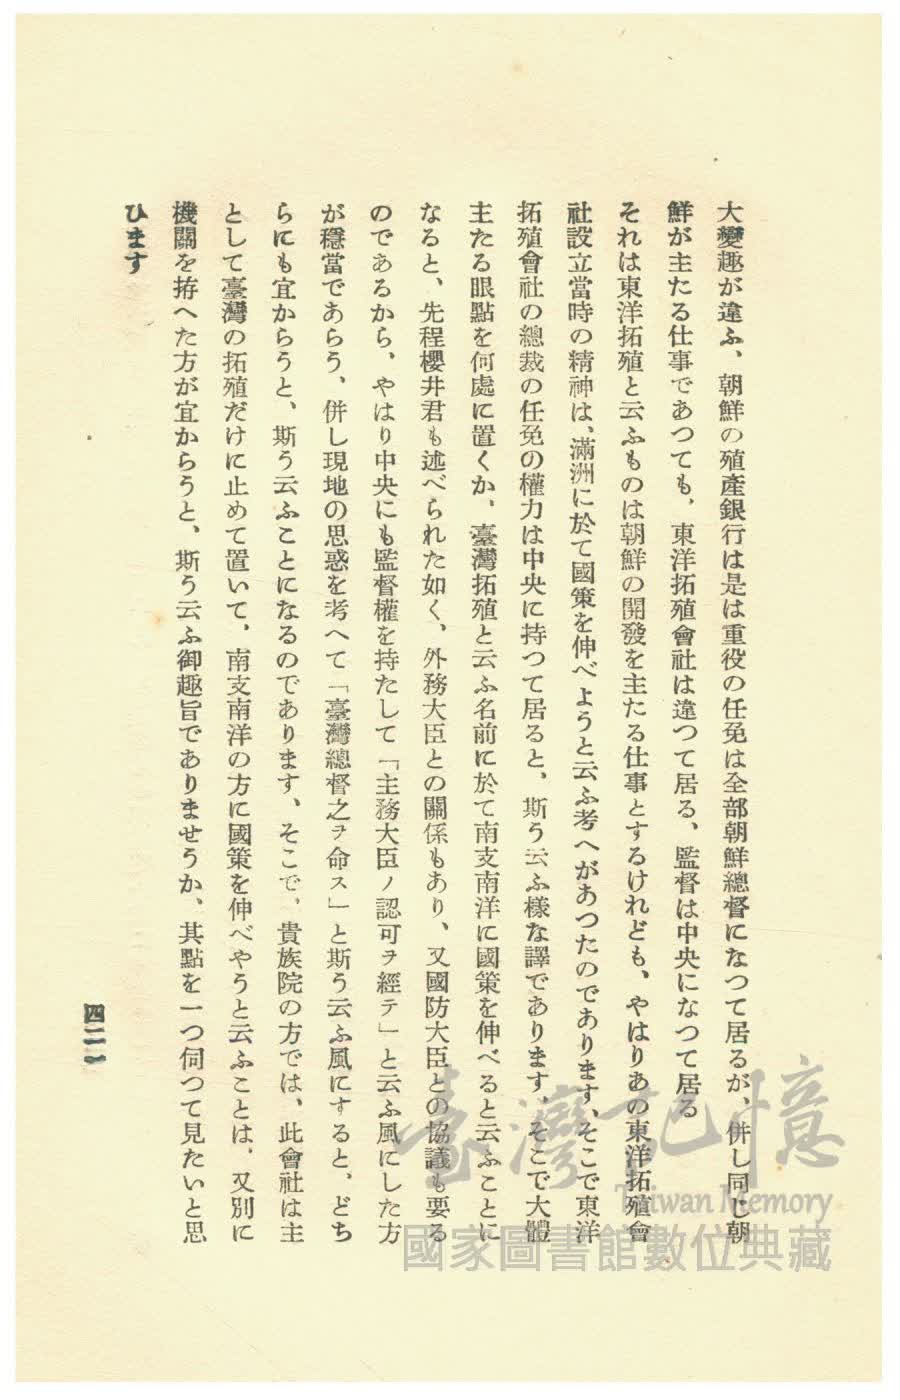 大變趣が違ふ、朝鮮の殖產銀行は是は重役の任免は全部朝鮮總督になつて居るが、併し同じ朝
鮮が主たる仕事であつても、東洋拓殖會社は違つて居る、監督は中央になつて居る
それは東洋拓殖と云ふものは朝鮮の開發を主たる仕事とするけれども、やはりあの東洋拓殖會
社設立當時の精神は、滿洲に於て國策を伸べようと云ふ考へがあつたのであります、そこで東洋
拓殖會社の總裁の任免の權力は中央に持つて居ると、斯う云ふ樣な譯であります、そこで大體
主たる眼點を何處に置くか、臺灣拓殖と云ふ名前に於て南支南洋に國策を伸べると云ふことに
なると、先程櫻井君も述べられた如く、外務大臣との關係もあり、又國防大臣との協議も要る
のであるから、やはり中央にも監督權を持たして「主務大臣ノ認可ヲ經テ」と云ふ風にした方
が穩當であらう、併し現地の思惑を考へて「臺灣總督之ヲ命ス」と斯う云ふ風にすると、どち
らにも宜からうと、斯う云ふことになるのであります、そこで、貴族院の方では、此會社は主
として臺灣の拓殖だけに止めて置いて、南支南洋の方に國策を伸べやうと云ふことは、又別に
機關を拵へた方が宜からうと、斯う云ふ御趣旨でありませうか、其點を一つ伺つて見たいと思
ひます
四二一
臺灣記憶
Taiwan Memory
國家圖書館數位典藏